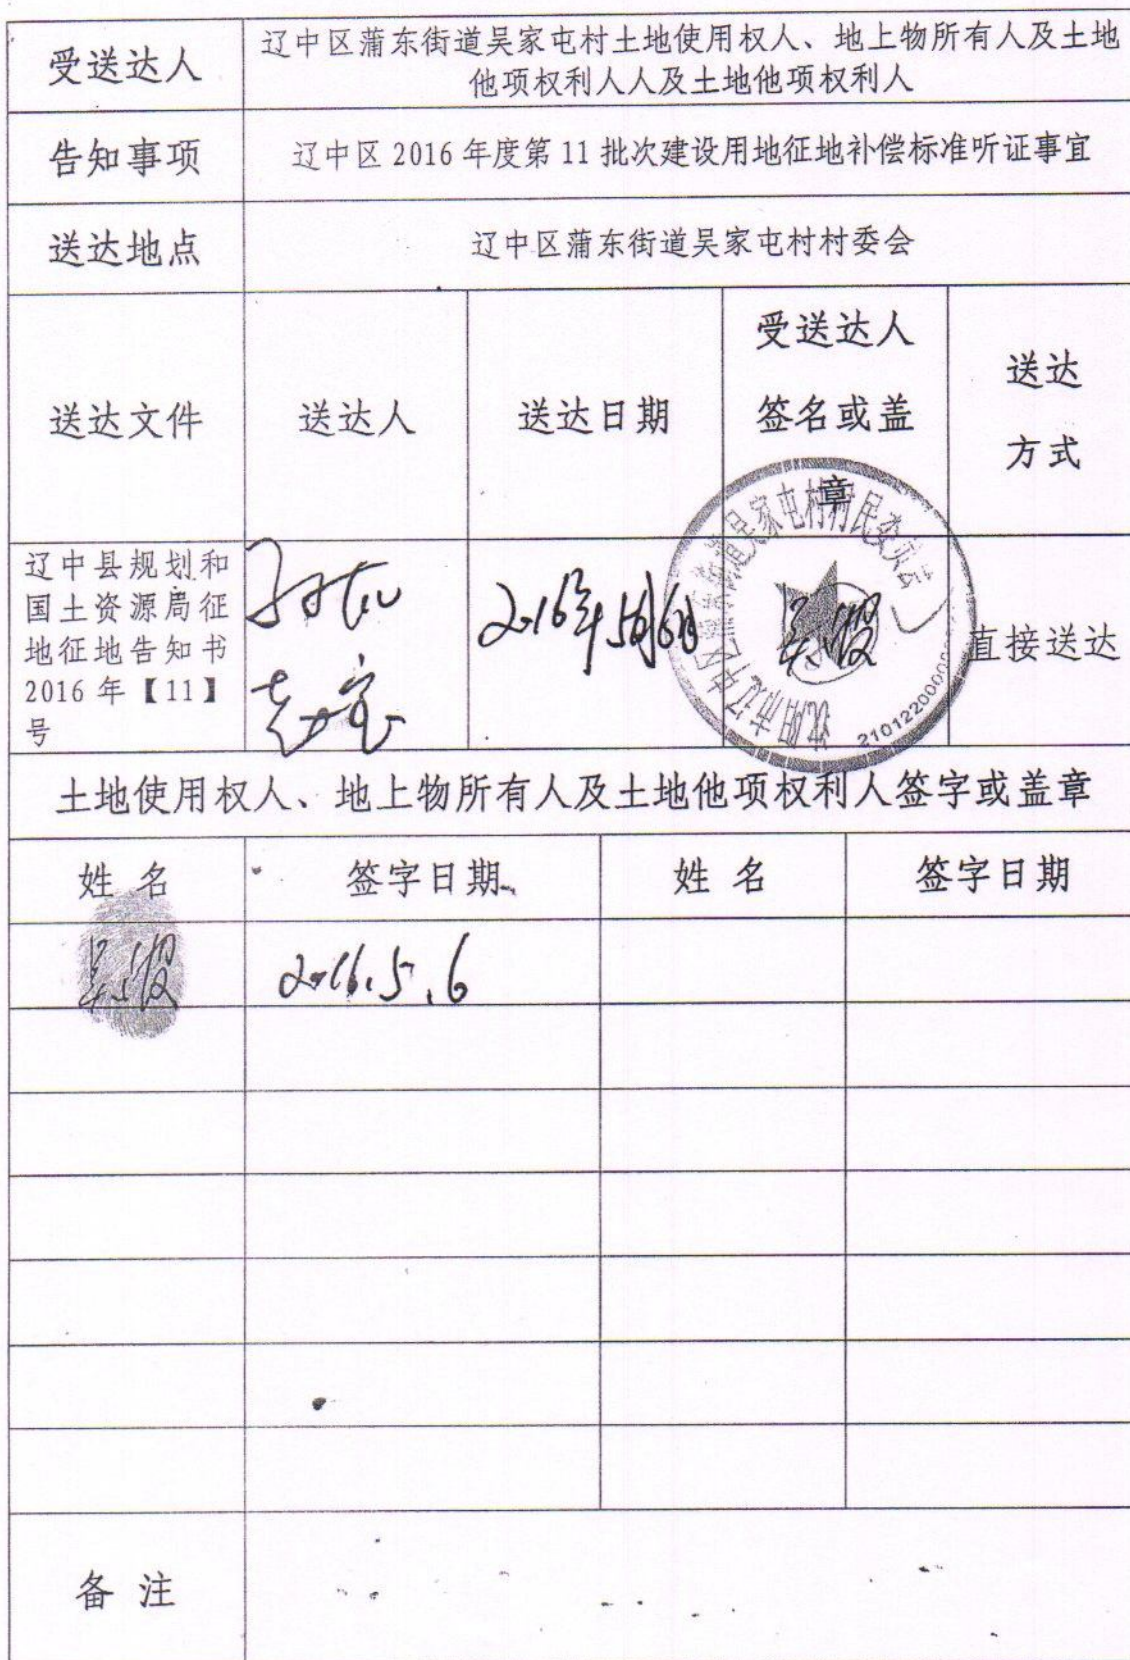 受送达人
辽中区蒲东街道吴家屯村土地使用权人、地上物所有人及土地
他项权利人人及土地他项权利人
告知事项
辽中区 2016 年度第 11 批次建设用地征地补偿标准听证事宜
送达地点
辽中区蒲东街道吴家屯村村委会
送达文件
送达人
送达日期
受送达人
签名或盖
章
送达
方式
辽中县规划和
国土资源局征
地征地告知书
2016 年【11】
号
2016年5月6日
沈阳市辽中区蒲东街道吴家屯村村民委员会
2101220000
直接送达
土地使用权人、地上物所有人及土地他项权利人签字或盖章
姓 名
签字日期
姓 名
签字日期
2016.5.6
备 注